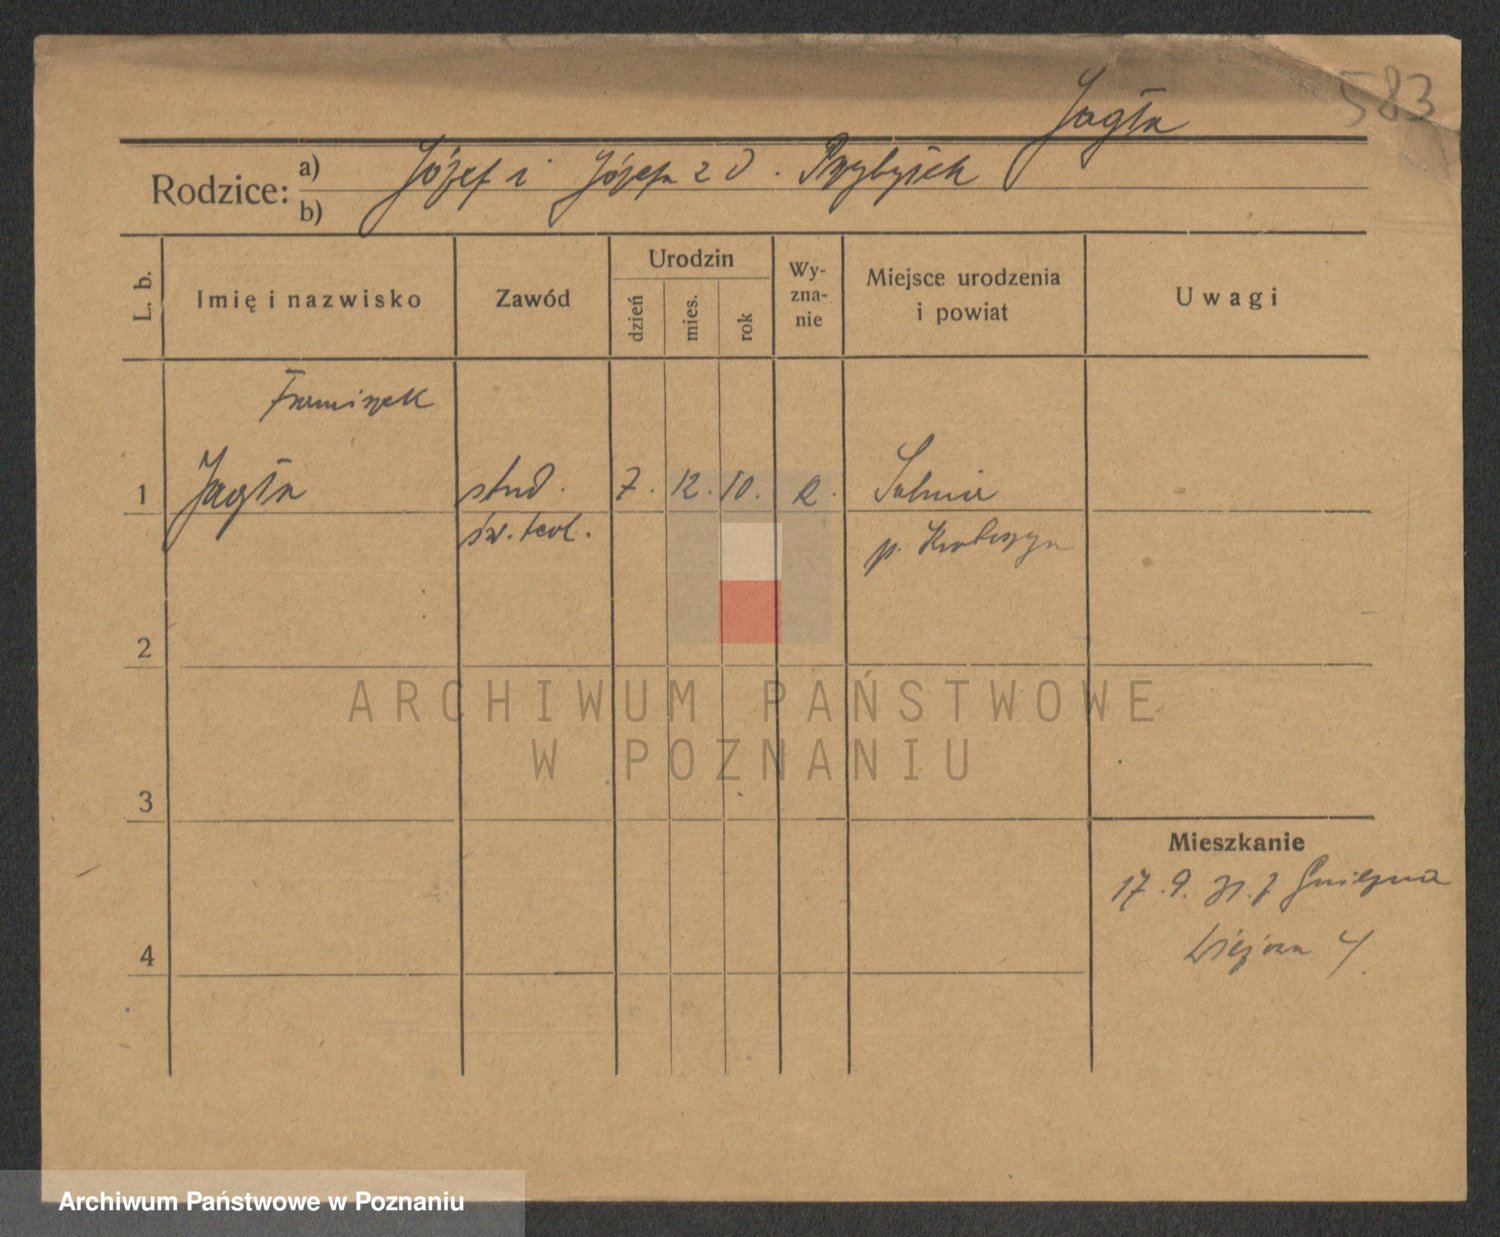 583
Jagła
Rodzice: a) Józef i Józefa z d. Przybyłek
b)
L. b.
Imię i nazwisko
Zawód
Urodzin
dzień
mies.
rok
Wy-
zna-
nie
Miejsce urodzenia
i powiat
Uwagi
Franciszek
1 Jagła stud. 7. 12. 10. R. Salnia
św. teol. p. Krotoszyn
2
ARCHIWUM PAŃSTWOWE
W POZNANIU
3
Mieszkanie
17. 9. 31. z Gniezna
4
Archiwum Państwowe w Poznaniu